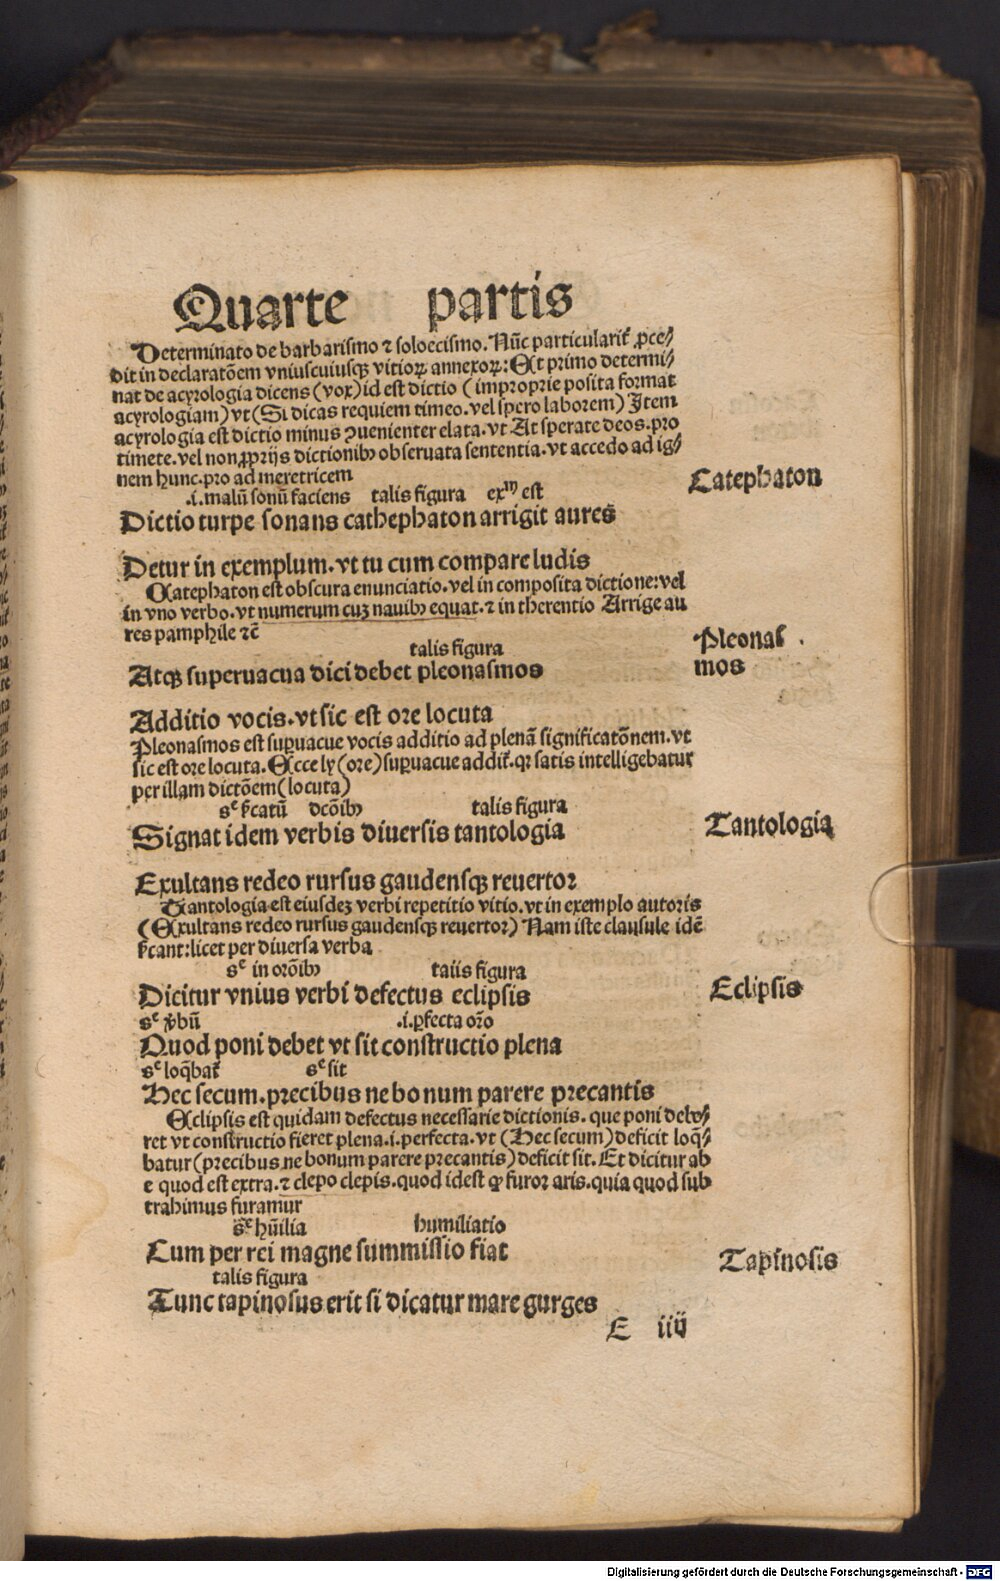 Quarte partis
Determinato de barbarismo ⁊ soloecismo. Nũc particularit̃ ꝓce⸗
dit in declaratõem vniuscuiusqꝫ vitioꝝ annexoꝝ: Et primo determi⸗
nat de acyrologia dicens (vox) id est dictio (improprie posita format
acyrologiam) vt (Si dicas requiem timeo. vel spero laborem) Item
acyrologia est dictio minus ꝯuenienter elata. vt At sperate deos. pro
timete. vel non ꝓprijs dictionibꝰ obseruata sententia. vt accedo ad ig⸗
nem hunc. pro ad meretricem
Catephaton
.i. malũ sonũ faciens talis figura exᵐ est
Dictio turpe sonans cathephaton arrigit aures
Detur in exemplum. vt tu cum compare ludis
Catephaton est obscura enunciatio. vel in composita dictione: vel
in vno verbo. vt numerum cuꝫ nauibꝰ equat. ⁊ in therentio Arrige au
res pamphile ⁊c̃
Pleonas
mos
talis figura
Atqꝫ superuacua dici debet pleonasmos
Additio vocis. vt sic est ore locuta
Pleonasmos est suꝑuacue vocis additio ad plenã significatõnem. vt
sic est ore locuta. Ecce ly (ore) suꝑuacue addit̃. qꝛ satis intelligebatur
per illam dictõem (locuta)
sᶜ p̃catũ dcõibꝰ talis figura
Tantologia
Signat idem verbis diuersis tantologia
Exultans redeo rursus gaudensqꝫ reuertor
Tantologia est eiusdeꝫ verbi repetitio vitio. vt in exemplo autoris
(Exultans redeo rursus gaudensqꝫ reuertor) Nam iste clausule idẽ
p̃cant: licet per diuersa verba
sᶜ in orõibꝰ talis figura
Eclipsis
Dicitur vnius verbi defectus eclipsis
sᶜ v̾bũ .i. ꝑfecta orõ
Quod poni debet vt sit constructio plena
sᶜ loq̃bat̃ sᶜ sit
Hec secum. precibus ne bonum parere precantis
Eclipsis est quidam defectus necessarie dictionis. que poni debe⸗
ret vt constructio fieret plena .i. perfecta. vt (Hec secum) deficit loq̃⸗
batur (precibus ne bonum parere precantis) deficit sit. Et dicitur ab
e quod est extra. ⁊ clepo clepis. quod idest qꝫ furor aris. quia quod sub
trahimus furamur
sᶜ hũilia humiliatio
Tapinosis
Cum per rei magne summissio fiat
talis figura
Tunc tapinosus erit si dicatur mare gurges
E iiij
Digitalisierung gefördert durch die Deutsche Forschungsgemeinschaft - DFG